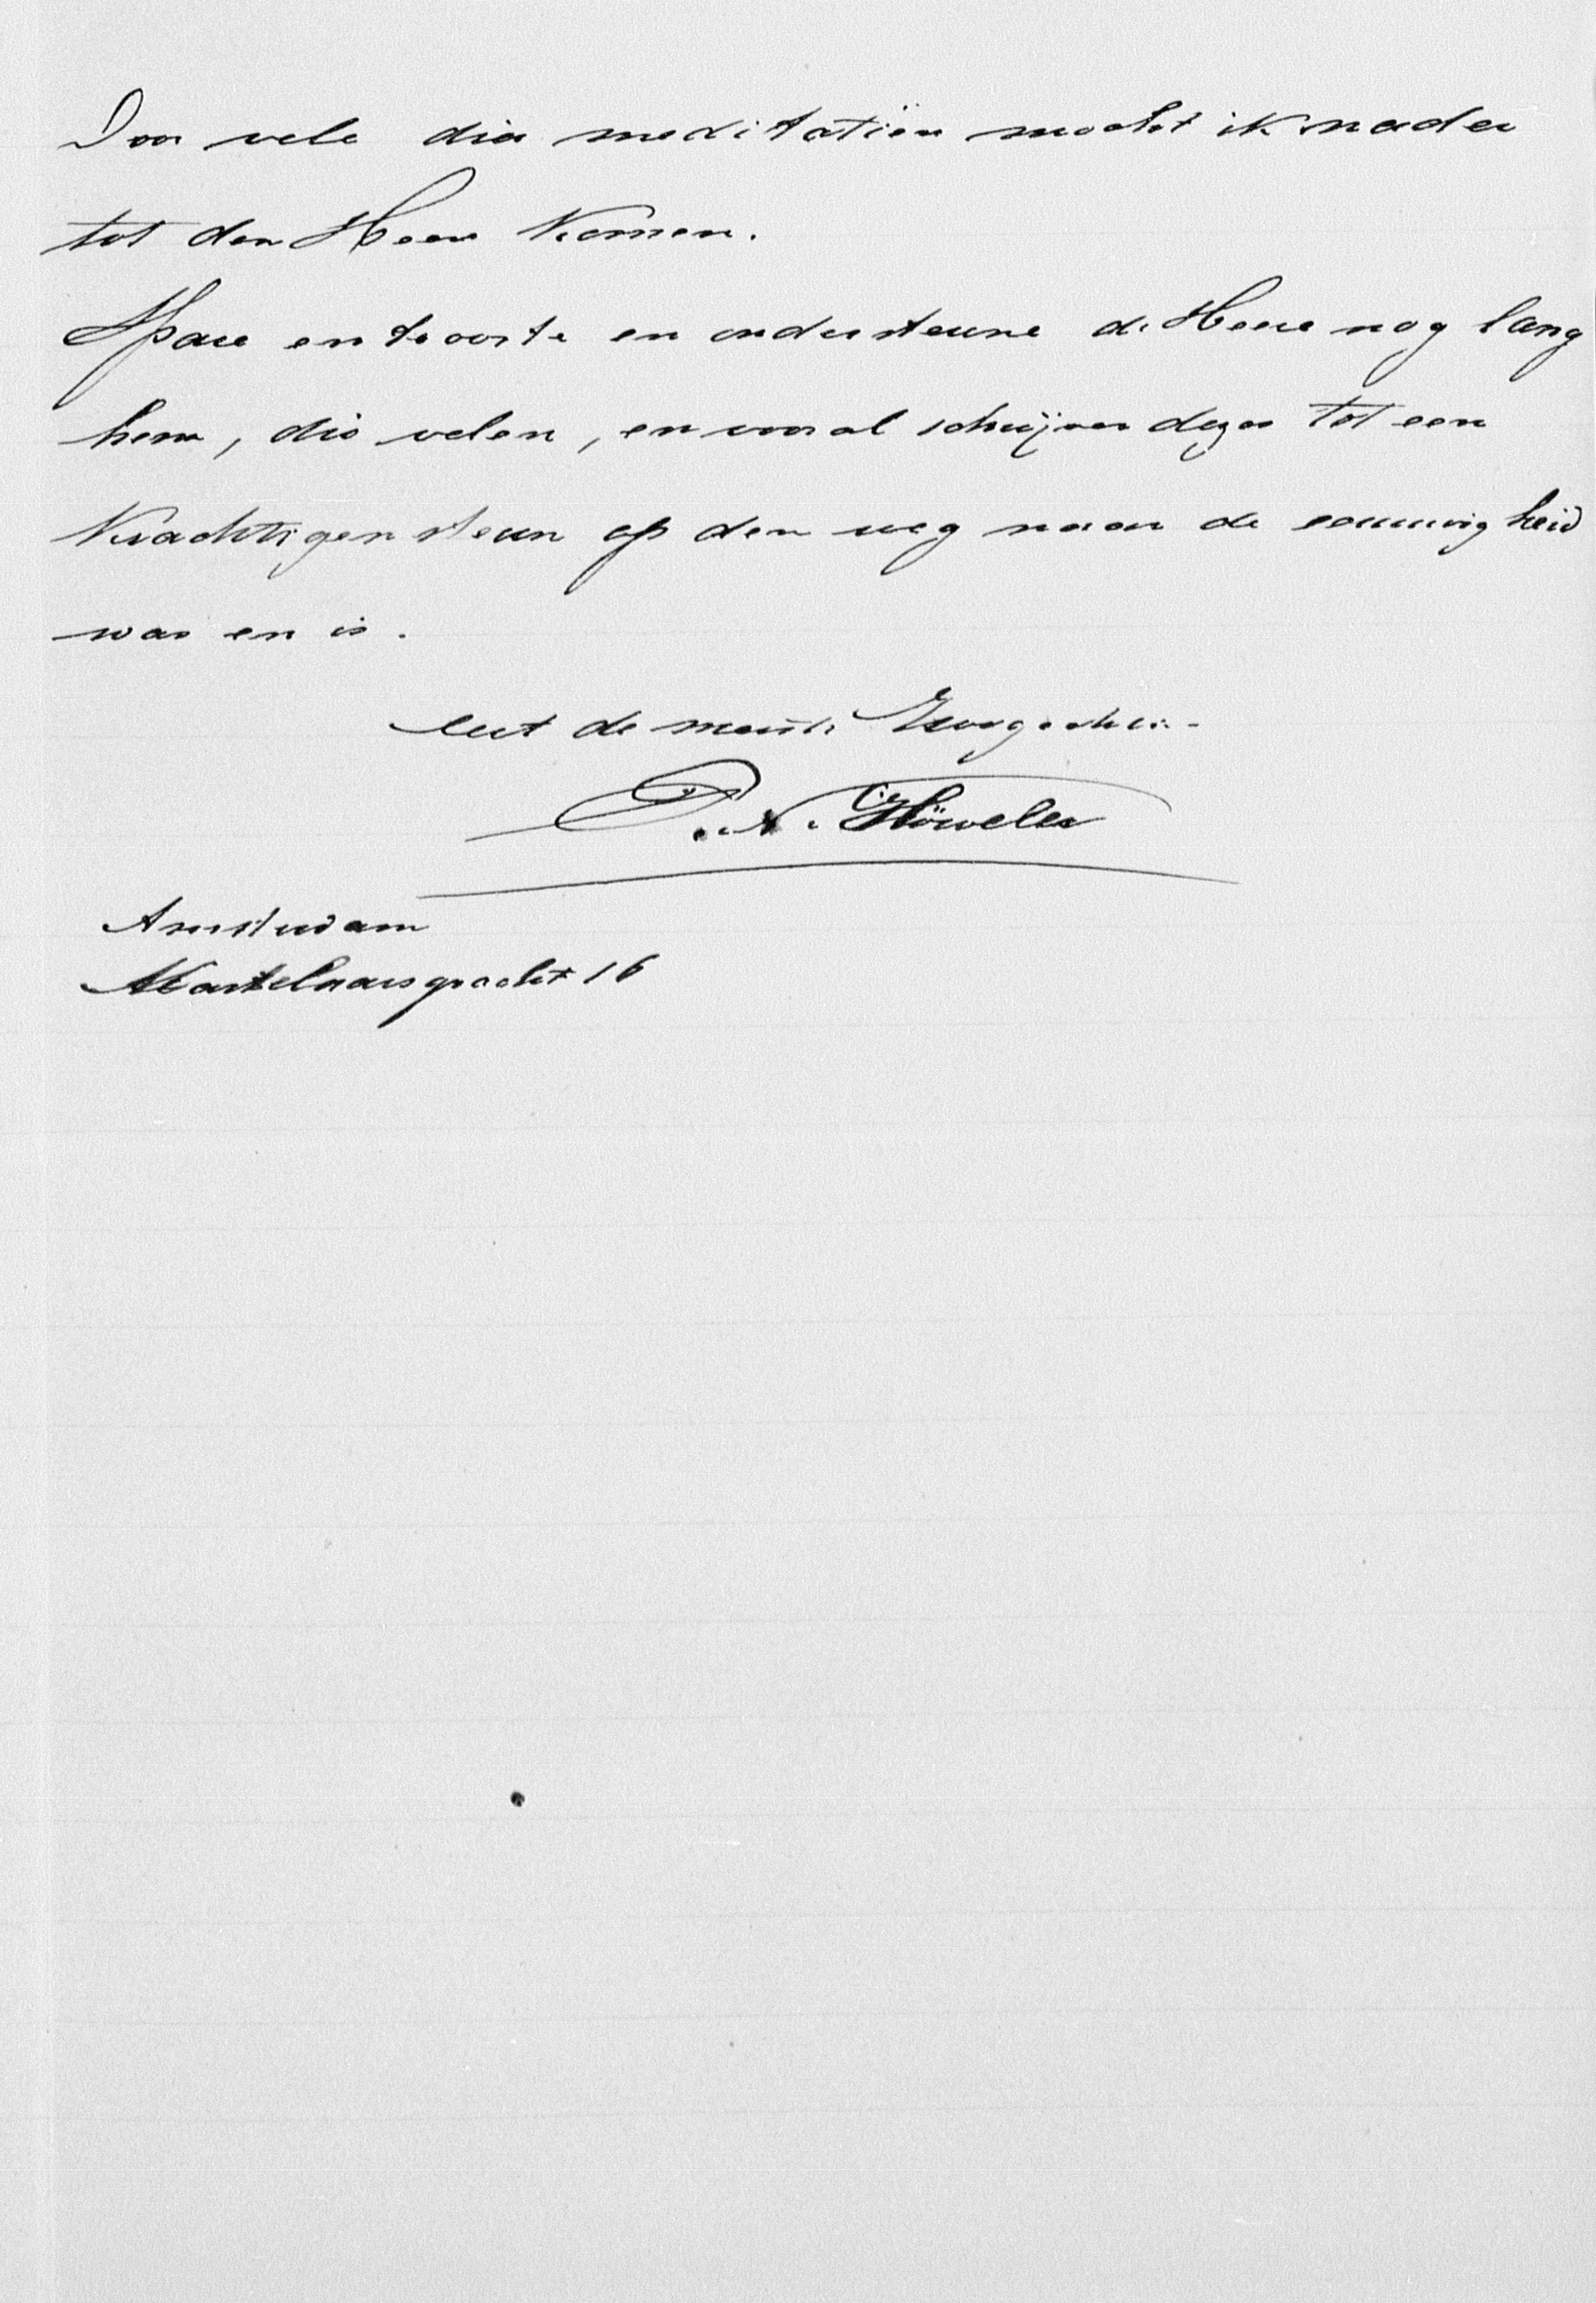 Door vele dier meditatiën mocht ik nader
tot den Heere komen.
Spare en trooste en ondersteune de Heere nog lang
hem, die velen, en vooral schrijver dezes tot een
krachtigen steun op den weg naar de eeuwigheid
was en is.
met de meeste Hoogachting
P. A. Höweler
Amsterdam
Martelaarsgracht 16